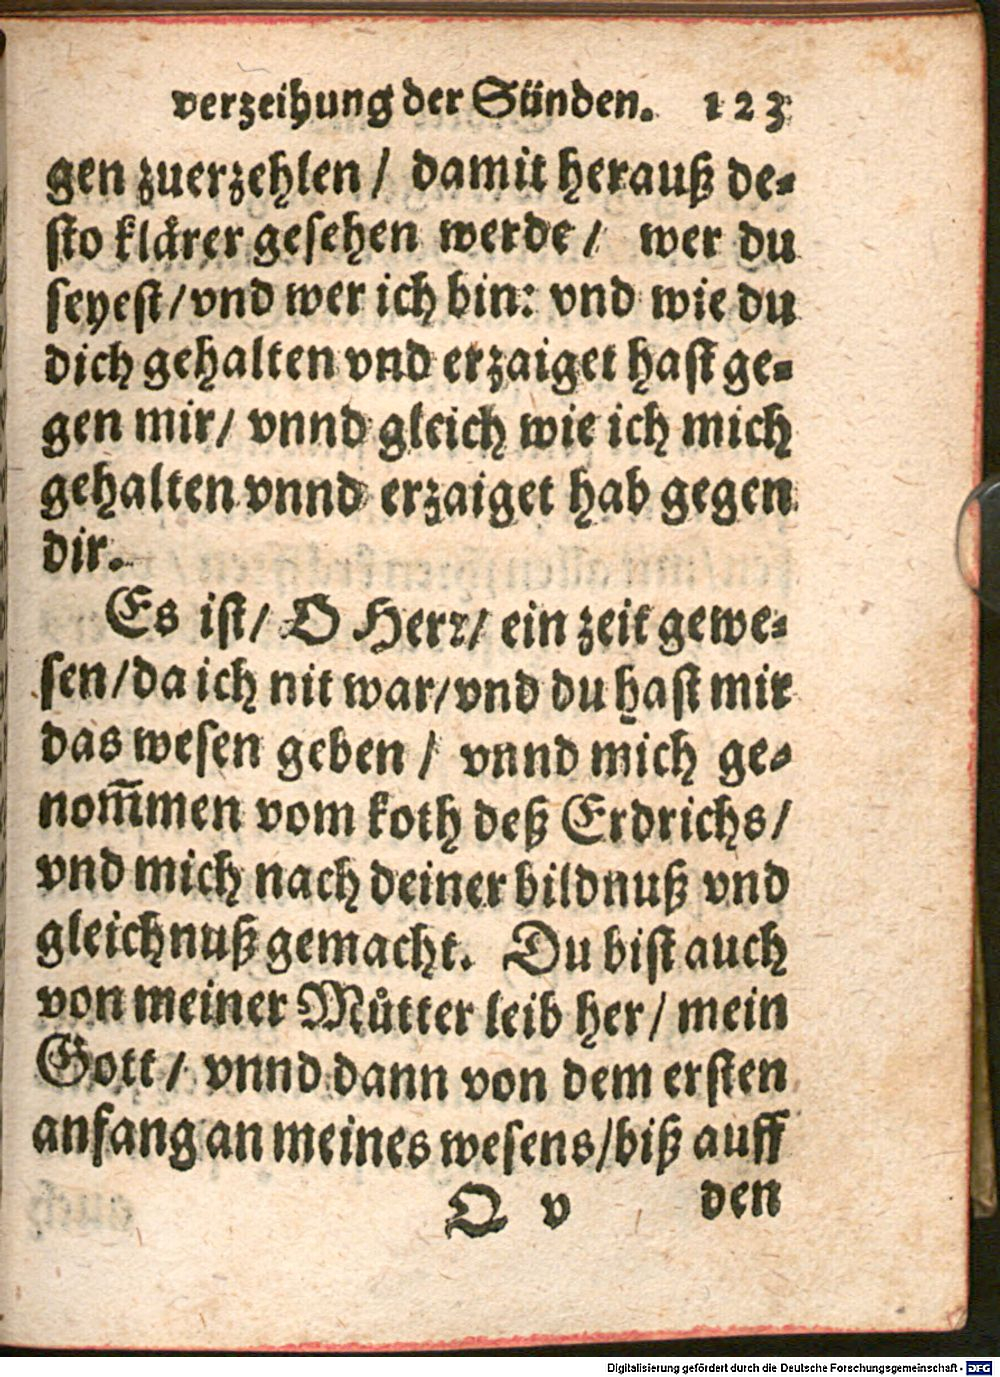 verzeihung der Sünden. 123
gen zuerzehlen / damit herauß de⸗
sto klårer gesehen werde / wer du
seyest / vnd wer ich bin: vnd wie du
dich gehalten vnd erzaiget hast ge⸗
gen mir / vnnd gleich wie ich mich
gehalten vnnd erzaiget hab gegen
dir.
Es ist / O Herr / ein zeit gewe⸗
sen / da ich nit war / vnd du hast mir
das wesen geben / vnnd mich ge⸗
nom̃men vom koth deß Erdrichs /
vnd mich nach deiner bildnuß vnd
gleichnuß gemacht. Du bist auch
von meiner Můtter leib her / mein
Gott / vnnd dann von dem ersten
anfang an meines wesens / biß auff
Q v den
Digitalisierung gefördert durch die Deutsche Forschungsgemeinschaft - DFG